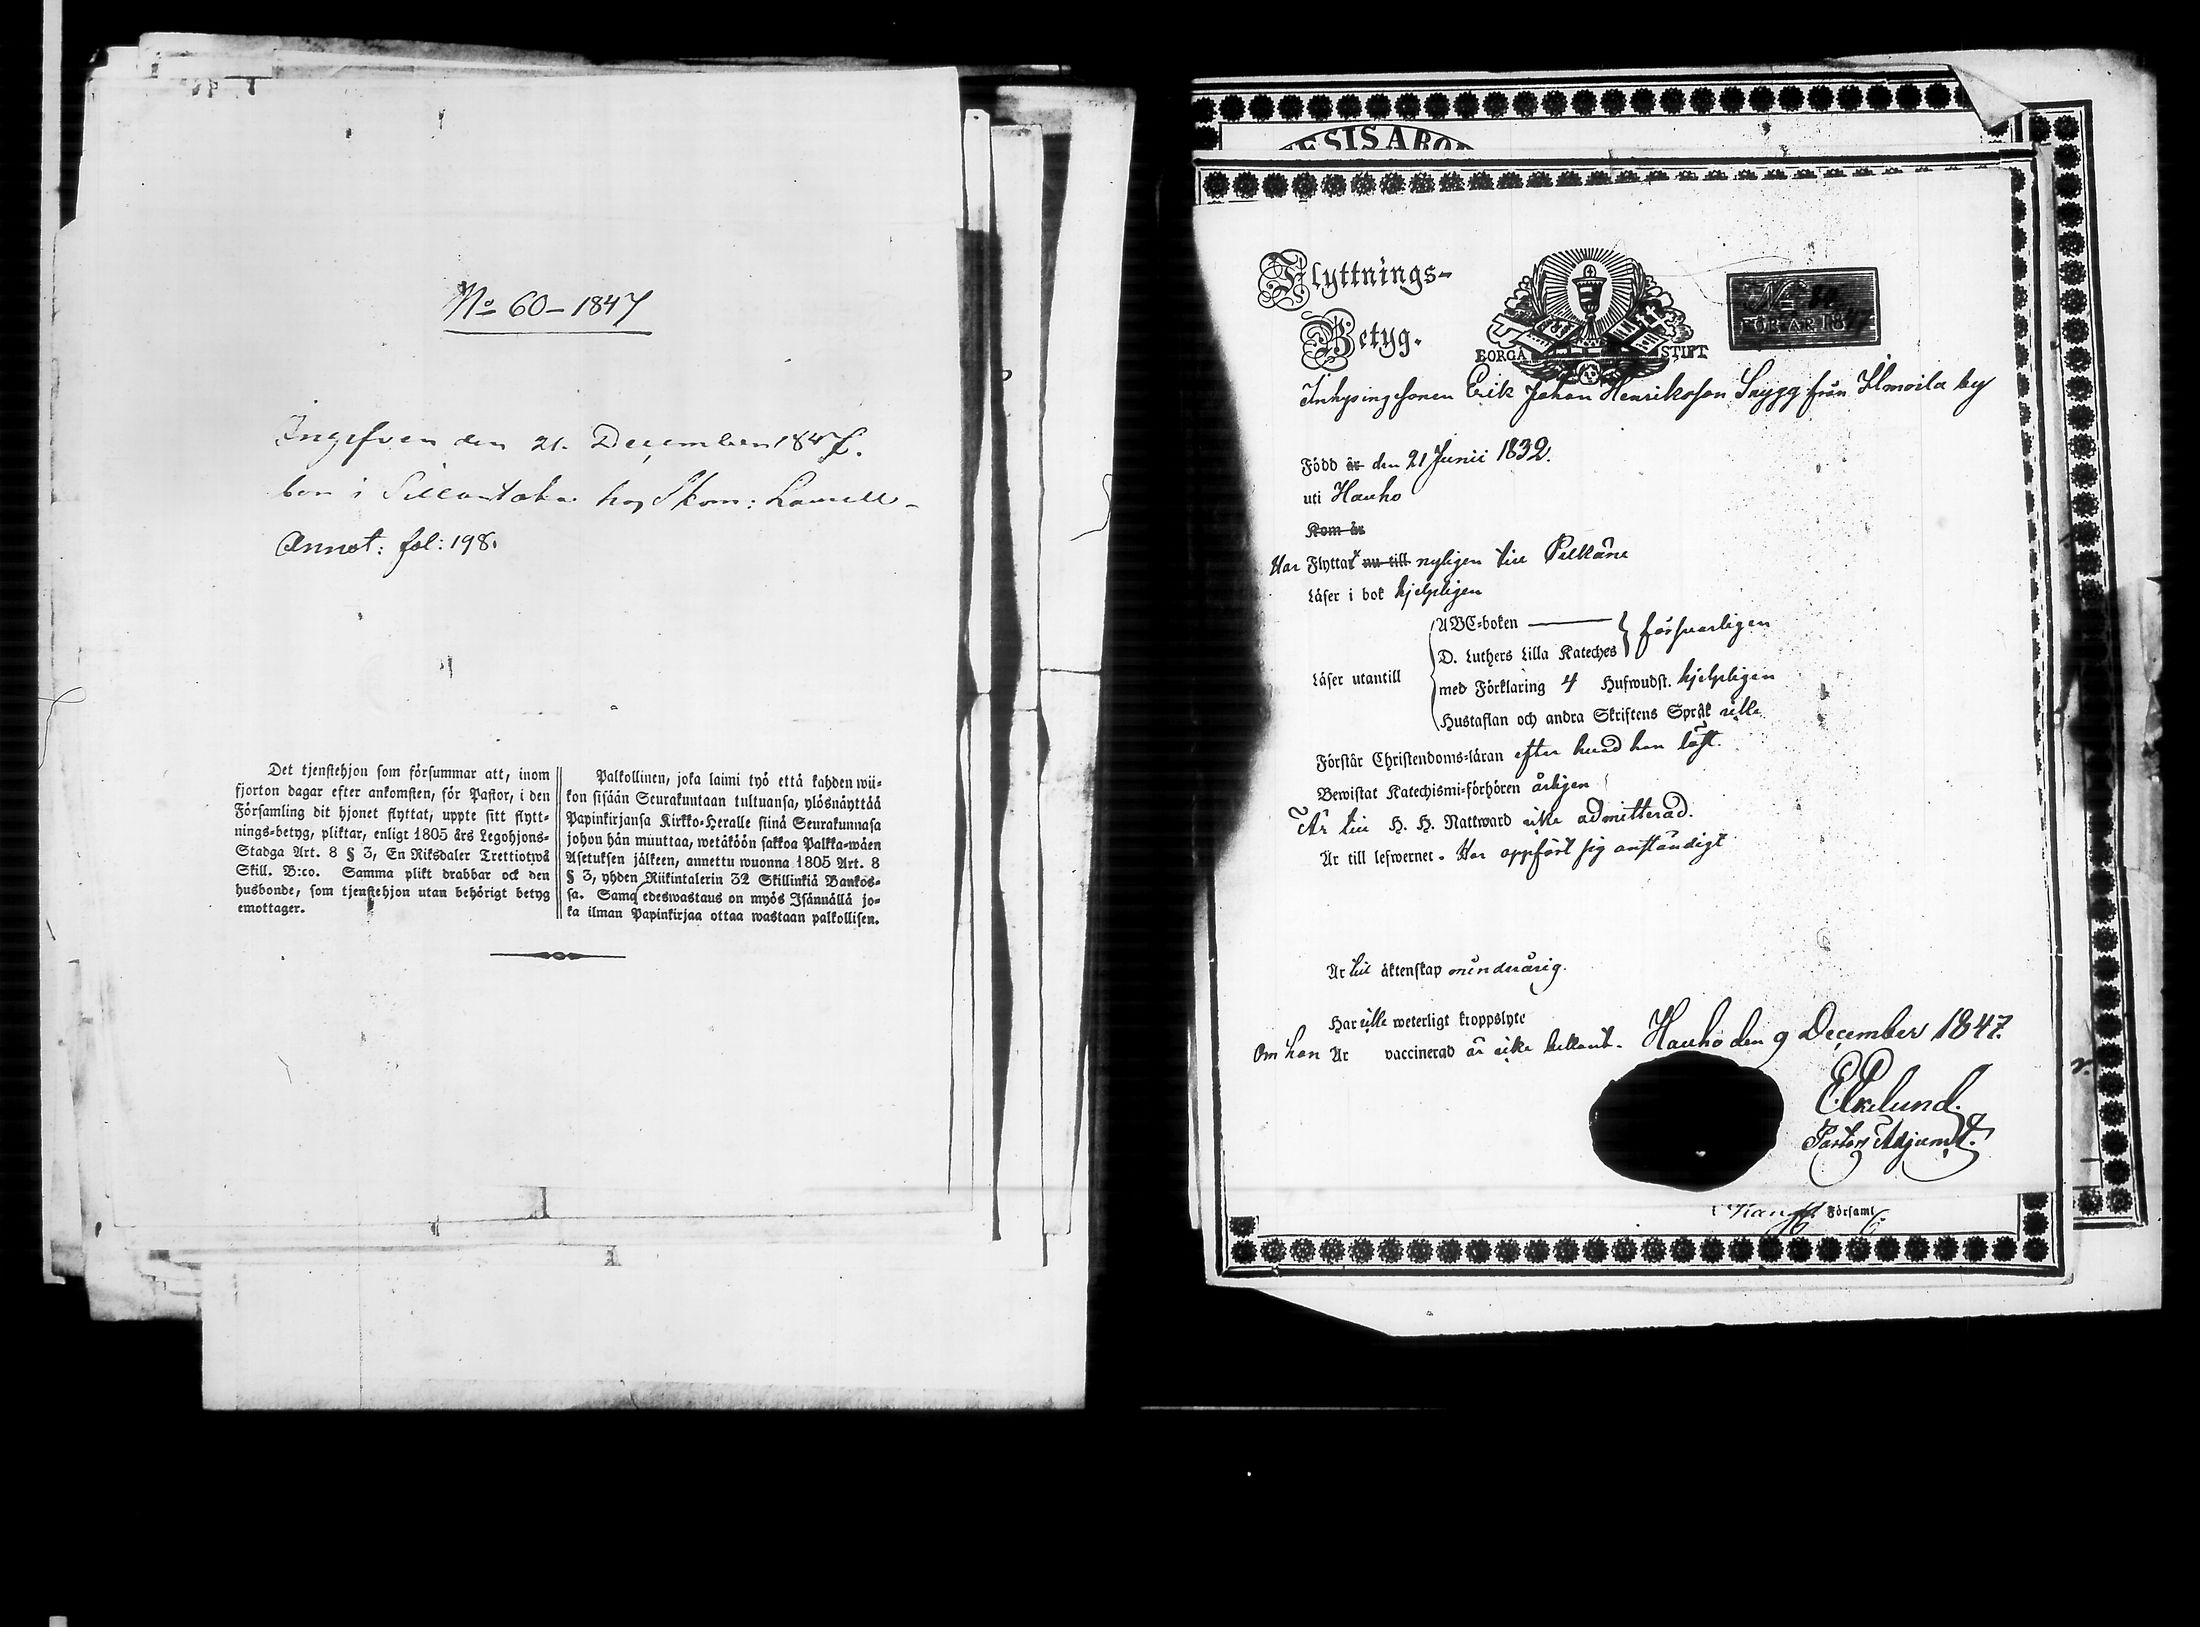 No 60 – 1847
Ingifven den 21. December 1847.
hos Skom:
Annot: fol: 198.
Det tjenstehjon som försummar att, inom
fjorton dagar efter ankomsten, för Pastor, i den
Församling dit hjonet flyttat, uppte sitt flytt-
nings-betyg, pliktar, enligt 1805 års Legohjons-
Stadga Art. 8 § 3, En Riksdaler Trettiotwå
Skill. B:co. Samma plikt drabbar ock den
husbonde, som tjenstehjon utan behörigt betyg
emottager.
Palkollinen, joka laimi lyö että kahden wii-
kon sisään Seurakuntaan tultuansa, ylösnäyttää
Papinkirjansa Kirkko-Heralle siinä Seurakunnasa
johon hän muuttaa, wetäköön sakkoa Palkka-wäen
Asetuksen jälkeen, annettu wuonna 1805 Art. 8
§ 3, yhden Riikintalerin 32 Skillinkiä Bankos-
sa. Sama edeswastaus on myös Isännällä jo-
ka ilman Papinkirjaa ottaa wastaan palkollisen.
ESIS ABO
Flyttnings-
Betyg.
BORGÅ STIFT
No 60
FÖR ÅR 1847
Inhysingesonen Erik Johan Henriksson Snygg från Ilmoila by
Född år den 21 Junii 1832.
uti Hauho
Kom år
Har Flyttat nu till nyligen till Pelkäne
Läser i bok hjelpligen
Läser utantill
ABC-boken
D. Luthers Lilla Kateches } försvarligen
med Förklaring 4 Hufwudst. hjelpligen
Hustaflan och andra Skriftens Språk icke
Förstår Christendoms-läran efter hvad han läst.
Bewistat Katechismi-förhören årligen
Är till H. H. Nattward icke admitterad.
Är till lefwernet. Har uppfört sig anständigt
Är till äktenskap minderårig.
Har icke weterligt kroppslyte
Om han Är vaccinerad är icke bekant. Hauho den 9 December 1847.
Ekelund.
Pastors Adjunct.
Församl.